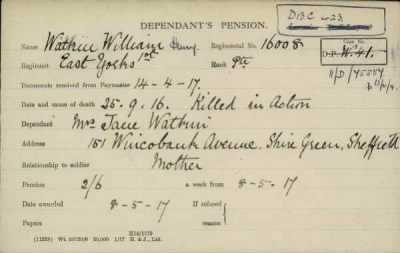 DEPENDANT'S PENSION.
DBC 423
Name Watkin William Henry Regimental No. 16008
D.P. W.41.
Regiment East Yorks 1st Rank Pte
Documents received from Paymaster 14-4-17.
Date and cause of death 25.9.16. Killed in Action
Dependant Mrs Jane Watkin
Address 151 Wincobank Avenue. Shire Green, Sheffield
Relationship to soldier Mother
Pension 2/6 a week from 8-5-17
Date awarded 8-5-17 If refused
Papers reason
H16/1179
(11258) Wt. 60730/6 20,000 1/17 H. & J., Ltd.